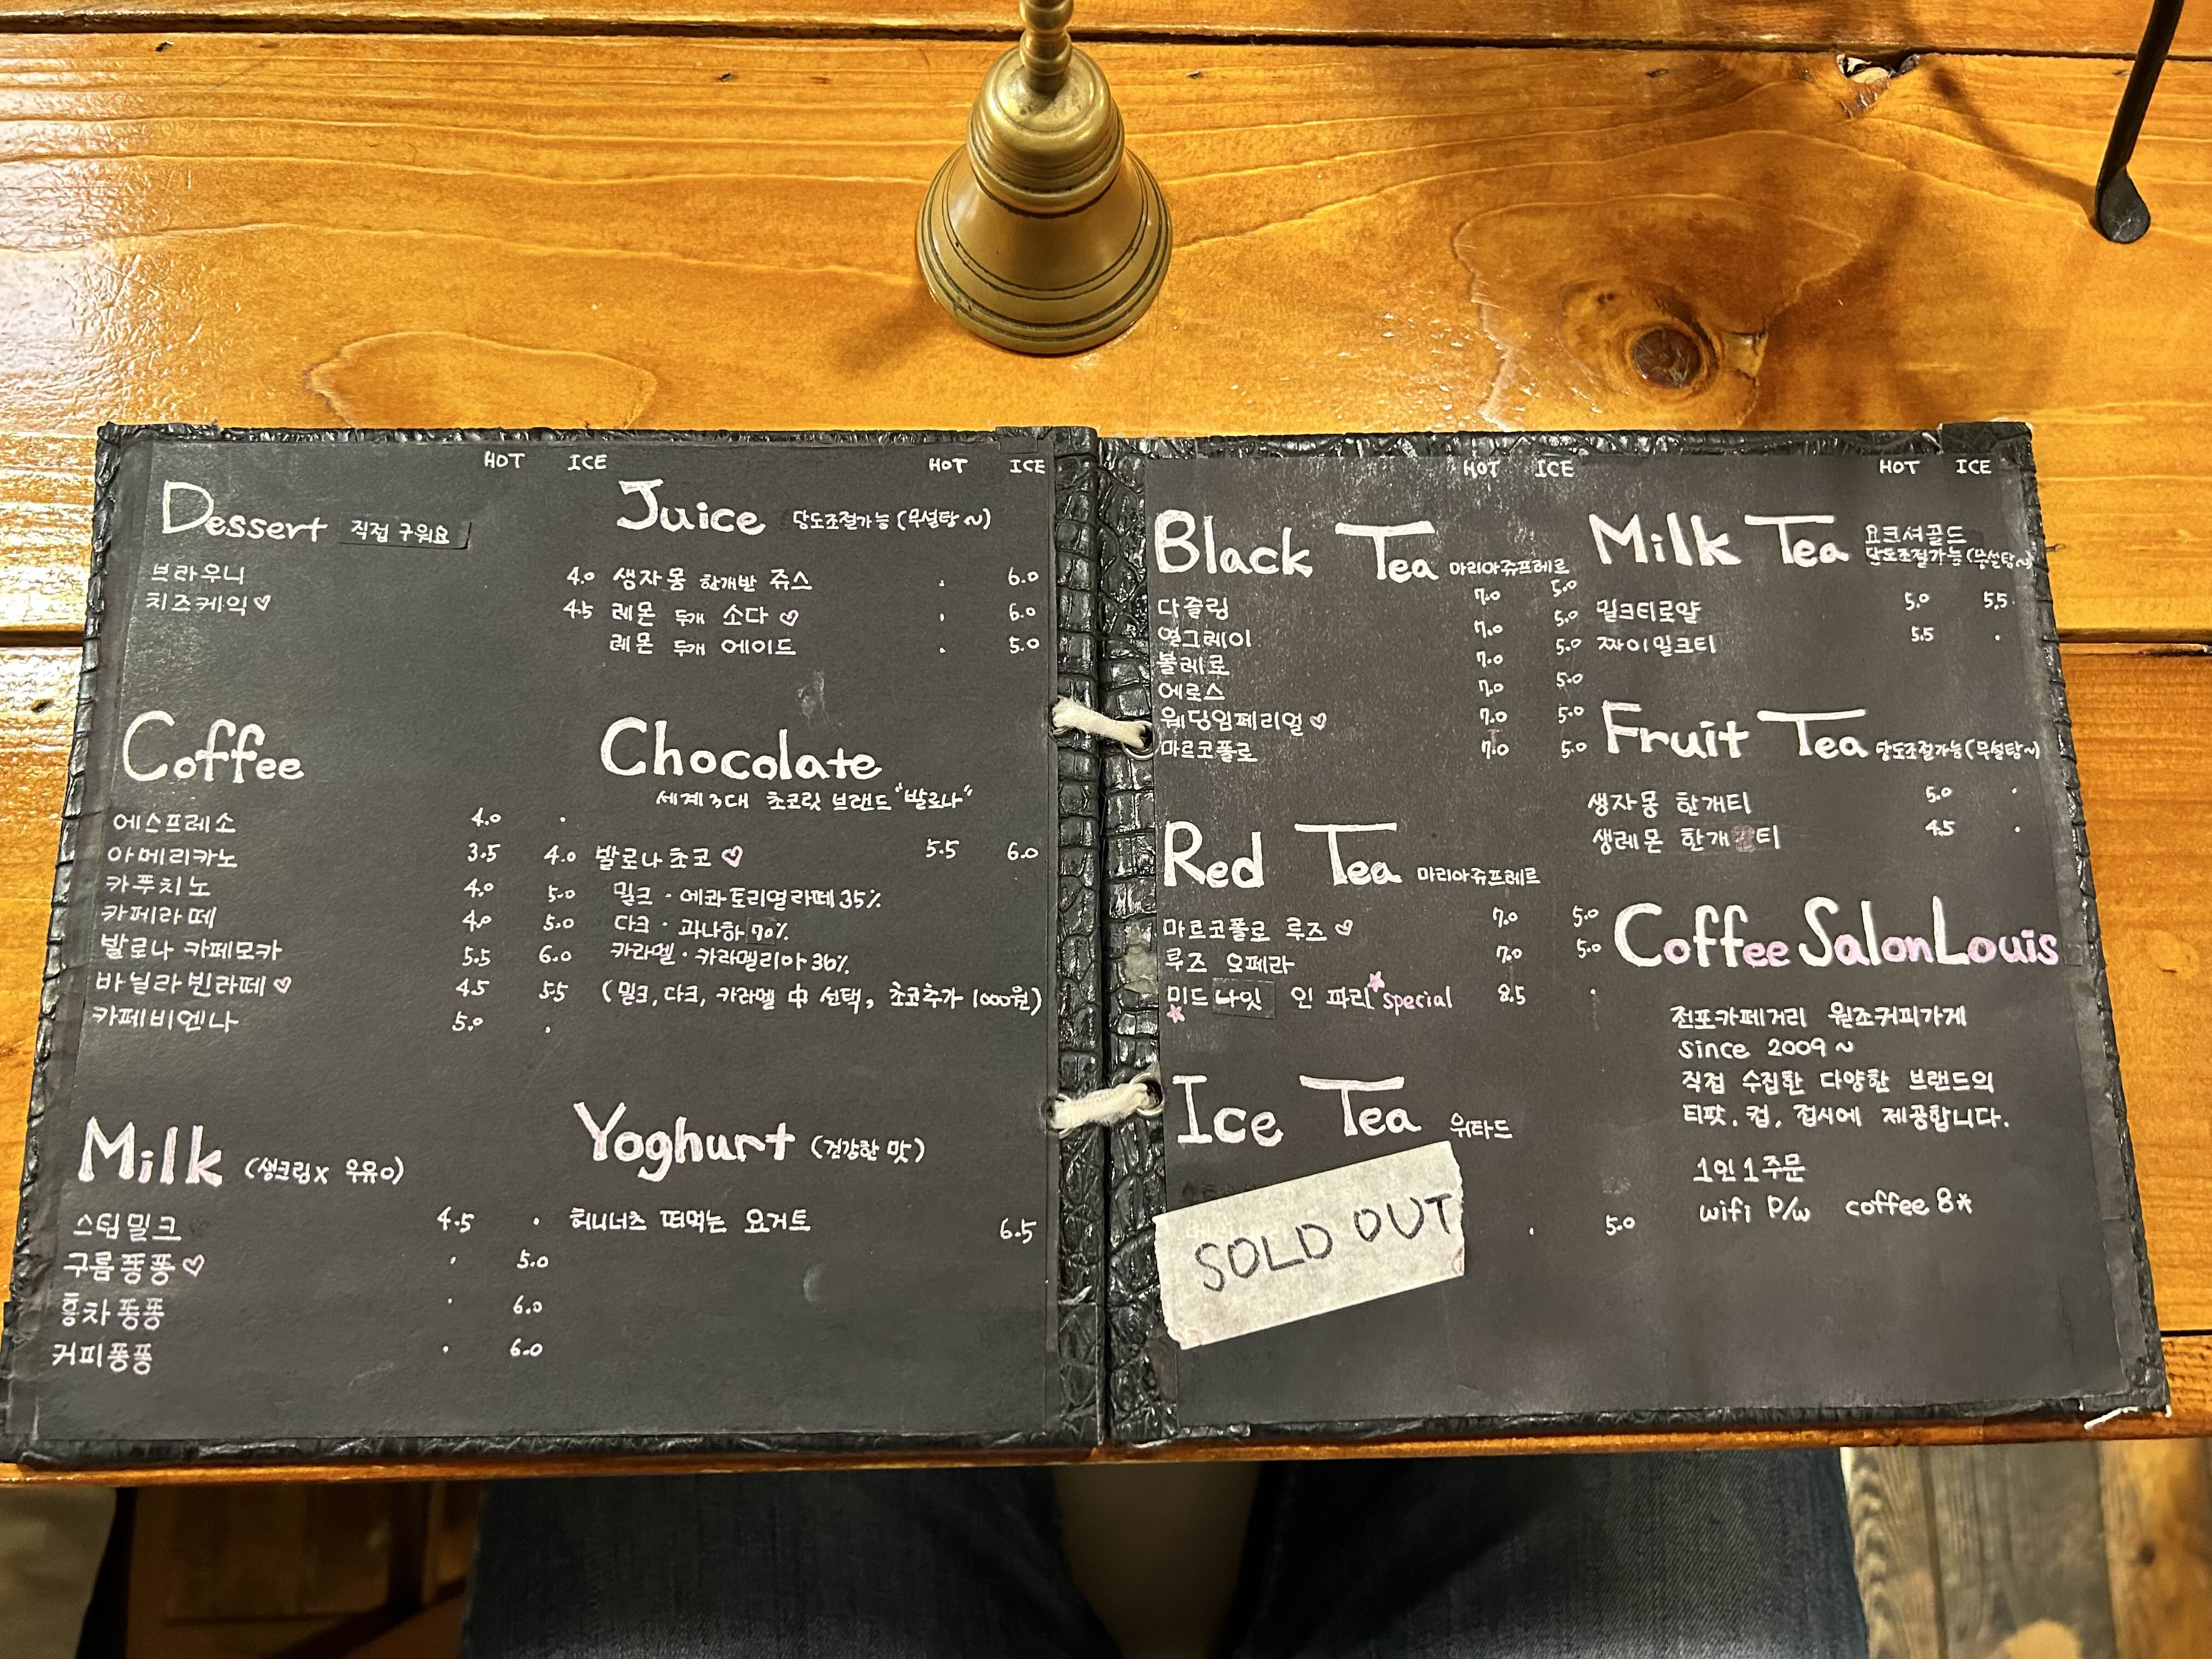 HOT ICE
Dessert 직접 구워요
브라우니 4.0
치즈케익♡ 4.5
Coffee
에스프레소 4.0 .
아메리카노 3.5 4.0
카푸치노 4.0 5.0
카페라떼 4.0 5.0
발로나 카페모카 5.5 6.0
바닐라빈라떼♡ 4.5 5.5
카페비엔나 5.0 .
Milk (생크림x 우유o)
스팀밀크 4.5 .
구름퐁퐁♡ . 5.0
홍차퐁퐁 . 6.0
커피퐁퐁 . 6.0
HOT ICE
Juice 당도조절가능(무설탕~)
생자몽 한개반 쥬스 . 6.0
레몬 두개 소다♡ . 6.0
레몬 두개 에이드 . 5.0
Chocolate
세계3대 초코릿 브랜드 "발로나"
발로나초코♡ 5.5 6.0
밀크 · 에콰토리얼라떼 35%
다크 · 과나하 70%
카라멜 · 카라멜리아 36%
(밀크, 다크, 카라멜 中 선택, 초코추가 1000원)
Yoghurt (건강한 맛)
허니너츠 떠먹는 요거트 6.5
HOT ICE
Black Tea 마리아쥬프레르
다즐링 7.0 5.0
얼그레이 7.0 5.0
볼레로 7.0 5.0
에로스 7.0 5.0
웨딩임페리얼♡ 7.0 5.0
마르코폴로 7.0 5.0
Red Tea 마리아쥬프레르
마르코폴로 루즈♡ 7.0 5.0
루즈 오페라 7.0 5.0
미드나잇 인 파리 special 8.5 .
Ice Tea 위타드
SOLD OUT . 5.0
HOT ICE
Milk Tea 요크셔골드
당도조절가능(무설탕~)
밀크티로얄 5.0 5.5
짜이밀크티 5.5 .
Fruit Tea 당도조절가능(무설탕~)
생자몽 한개티 5.0 .
생레몬 한개티 4.5 .
Coffee Salon Louis
전포카페거리 원조커피가게
since 2009~
직접 수집한 다양한 브랜드의
티팟, 컵, 접시에 제공합니다.
1인 1주문
wifi P/w coffee8*